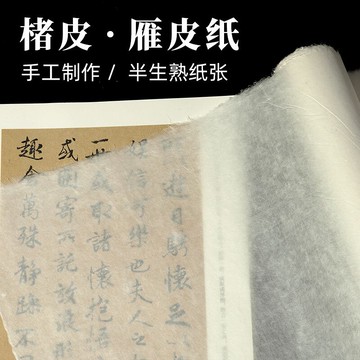 楮皮·雁皮纸
手工制作 / 半生熟纸张
遊目騁懷足以
娛信可樂也夫人之
一世或取諸懷抱悟
或因寄所託放浪形
趣舍萬殊靜躁不